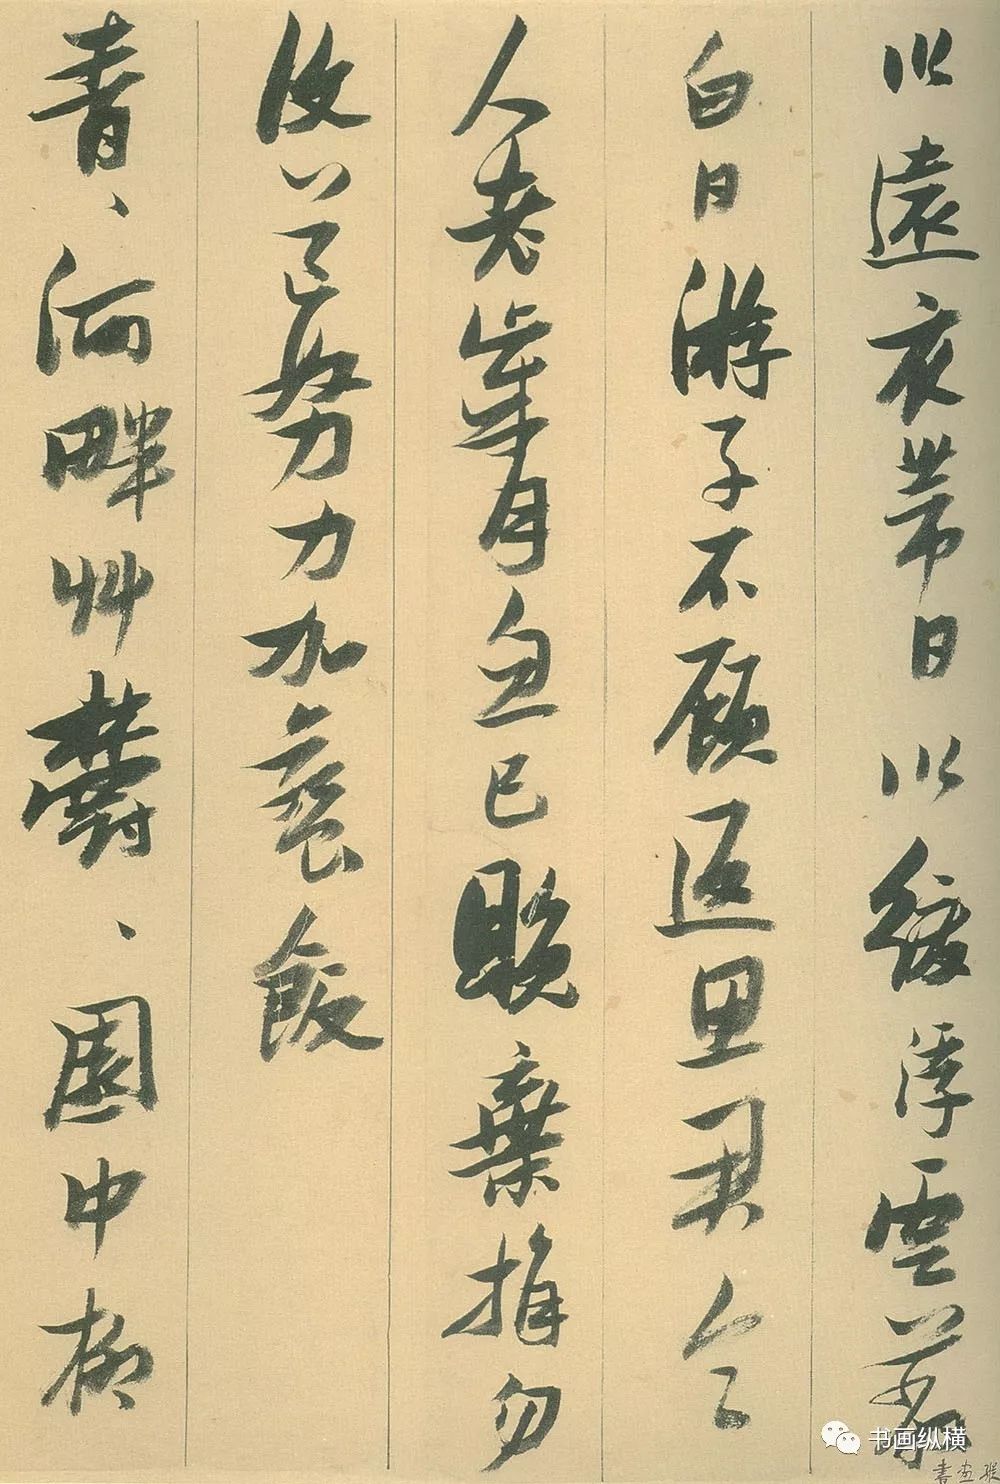 以遠衣帶日以緩浮雲蔽
白日游子不顧返思君令
人老歲月忽已晚棄捐勿
復道努力加餐飯
青、河畔艸鬱、園中柳
书画纵横